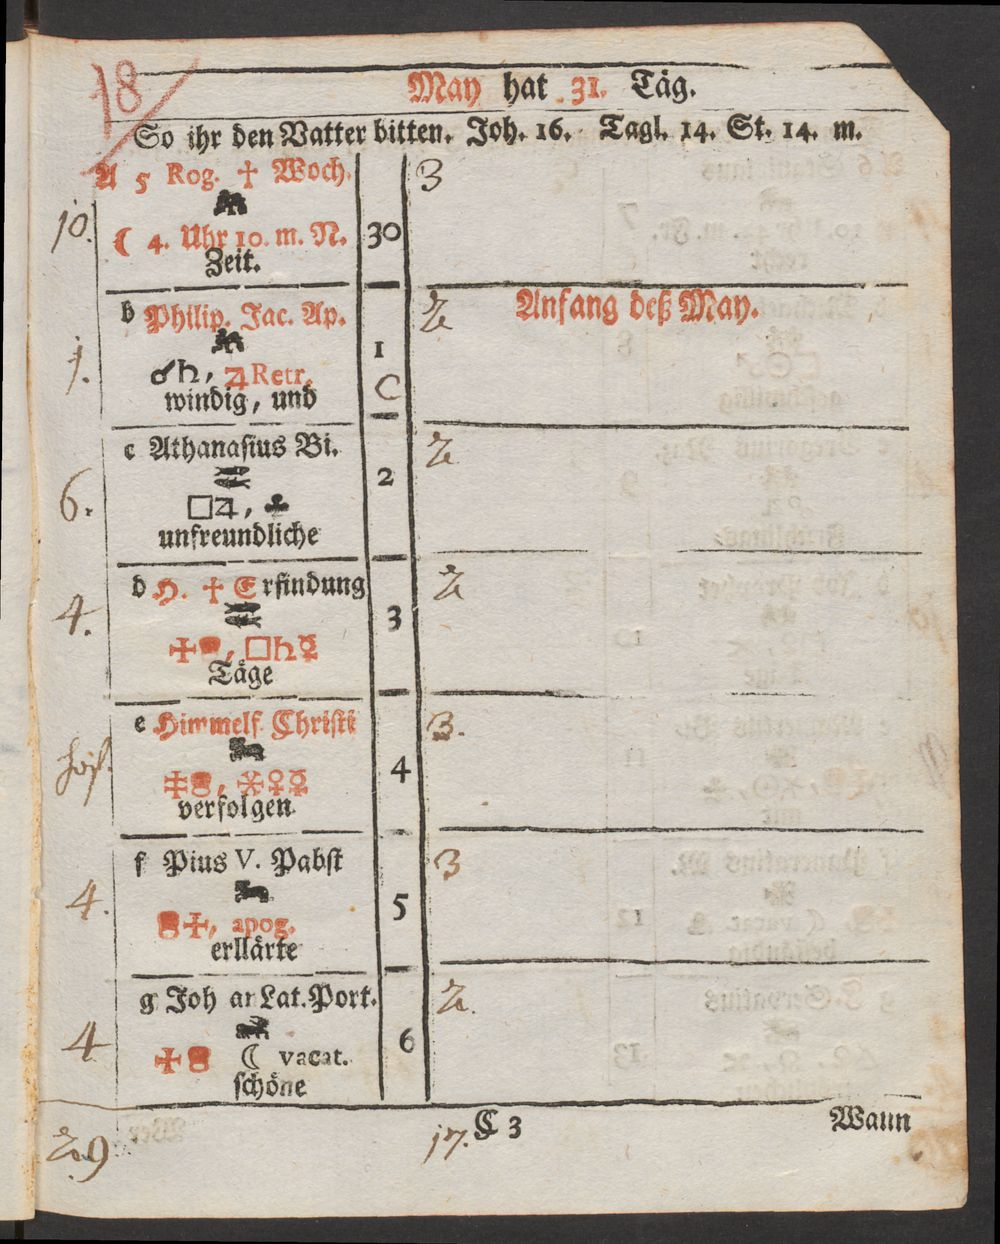 18
May hat 31. Täg.
So ihr den Vatter bitten. Joh. 16. Tagl. 14. St. 14. m.
A 5 Rog. † Woch.
3
10.
☾ 4. Uhr 10. m. N.
30
Zeit.
b Philip. Jac. Ap.
2
Anfang deß May.
1
1.
☌♄, ♃ Retr.
C
windig, und
c Athanasius Bi.
2
2
6.
□♃, ♣
unfreundliche
d H. † Erfindung
2
4.
3
□♄☿
Täge
e Himmelf. Christi
3.
4
♀☿
verfolgen
f Pius V. Pabst
3
4.
5
apog.
erllärte
g Joh an Lat. Port.
2.
4
6
☾ vacat.
schöne
29
17.
C 3
Wann